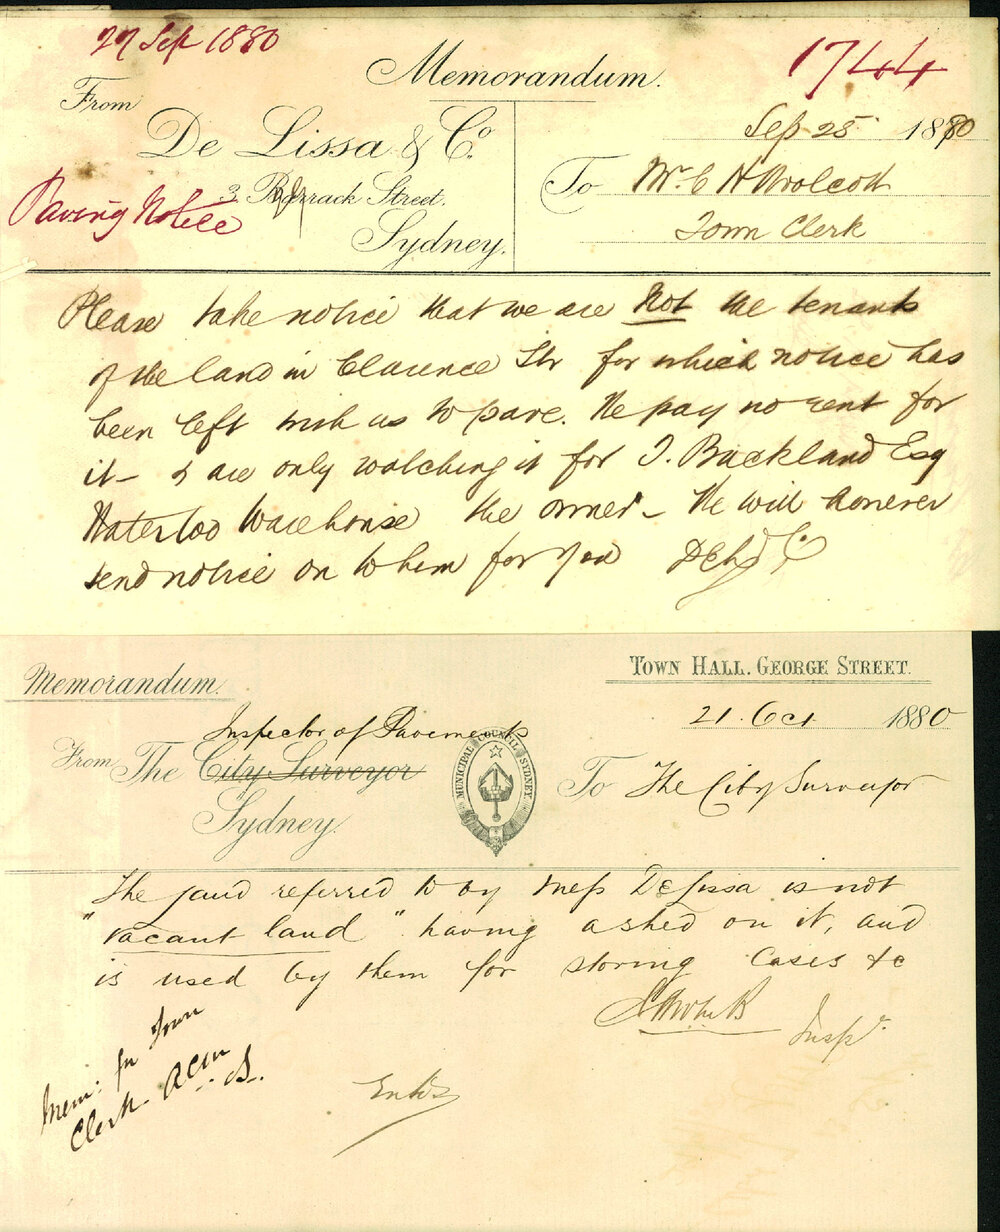 27 Sep 1880
Memorandum.
1744
From
De Lissa & Co.
Sep 25 1880
3 Barrack Street.
To Mr. C H Woolcott
Paving Notice
Sydney.
Town Clerk
Please take notice that we are Not the tenants
of the land in Clarence Str for which notice has
been left with us to pave. We pay no rent for
it - & are only watching it for J. Backland Esq
Waterloo Warehouse the owner - We will however
send notice on to him for you
Memorandum.
TOWN HALL. GEORGE STREET.
21 Oct 1880
Inspector of Pavements
From The City Surveyor
MUNICIPAL COUNCIL SYDNEY
To The City Surveyor
Sydney.
The land referred to by Mess De Lissa is not
"vacant land" having a shed on it, and
is used by them for storing Cases &c
Inspr.
Mem: for Town
Clerk